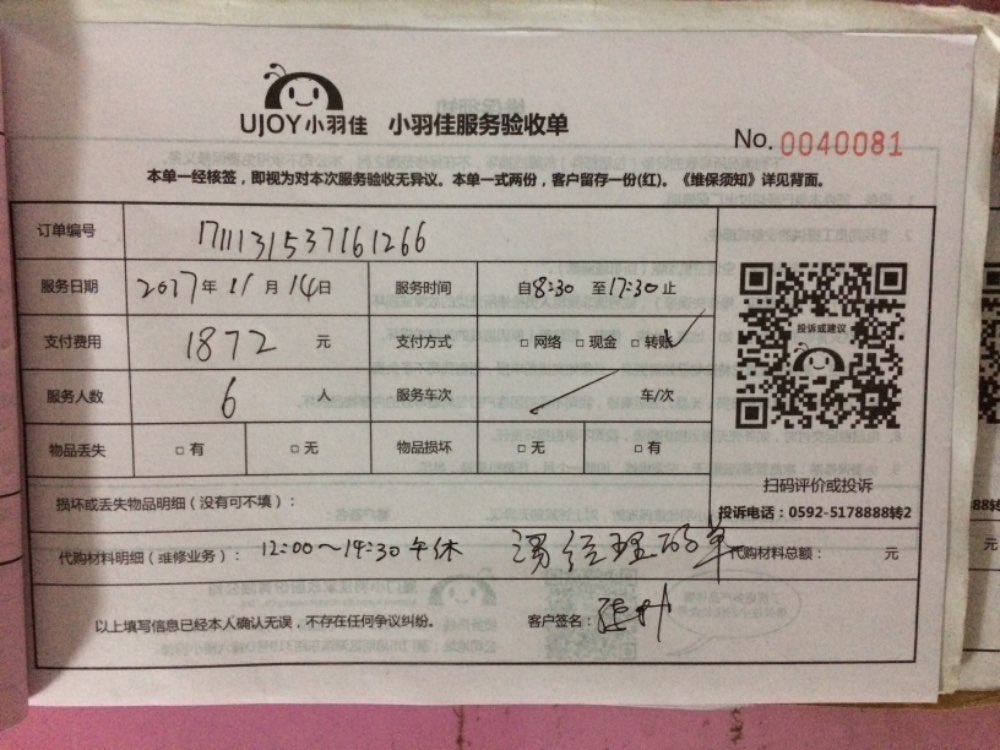 UJOY小羽佳 小羽佳服务验收单
No. 0040081
本单一经核签，即视为对本次服务验收无异议。本单一式两份，客户留存一份(红)。《维保须知》详见背面。
订单编号 171113153716126​6
服务日期 2017年 11 月 14日 服务时间 自8:30 至17:30止
支付费用 1872 元 支付方式 □ 网络 □ 现金 □ 转账 ✓
服务人数 6 人 服务车次 车/次
投诉或建议
物品丢失 □ 有 □ 无 物品损坏 □ 无 □ 有
扫码评价或投诉
损坏或丢失物品明细（没有可不填）：
投诉电话：0592-5178888转2
代购材料明细（维修业务）： 12:00～14:30 午休 经理 单 代购材料总额： 元
以上填写信息已经本人确认无误，不存在任何争议纠纷。 客户签名：